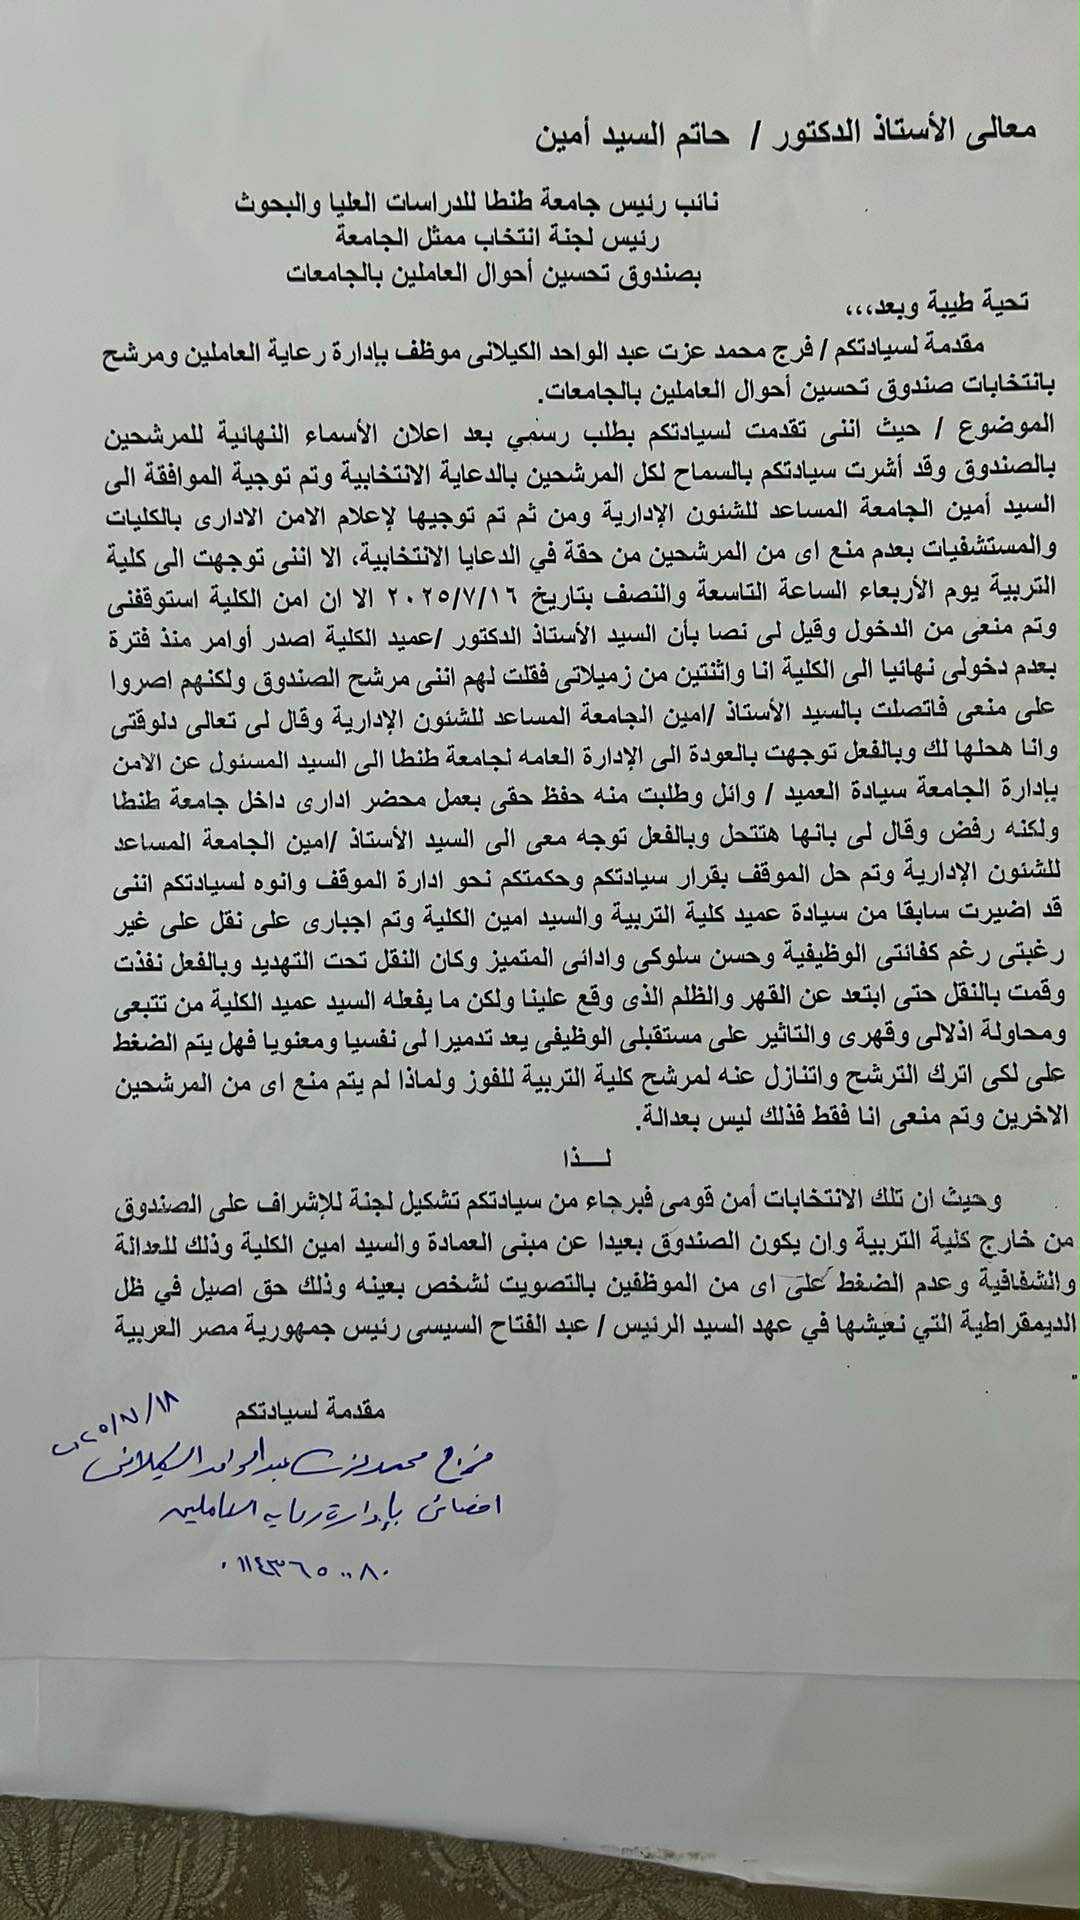 معالى الأستاذ الدكتور / حاتم السيد أمين
نائب رئيس جامعة طنطا للدراسات العليا والبحوث
رئيس لجنة انتخاب ممثل الجامعة
بصندوق تحسين أحوال العاملين بالجامعات
تحية طيبة وبعد،،،
مقدمة لسيادتكم / فرج محمد عزت عبد الواحد الكيلانى موظف بإدارة رعاية العاملين ومرشح
بانتخابات صندوق تحسين أحوال العاملين بالجامعات.
الموضوع / حيث اننى تقدمت لسيادتكم بطلب رسمي بعد اعلان الأسماء النهائية للمرشحين
بالصندوق وقد أشرت سيادتكم بالسماح لكل المرشحين بالدعاية الانتخابية وتم توجية الموافقة الى
السيد أمين الجامعة المساعد للشئون الإدارية ومن ثم تم توجيها لإعلام الامن الادارى بالكليات
والمستشفيات بعدم منع اى من المرشحين من حقة في الدعايا الانتخابية، الا اننى توجهت الى كلية
التربية يوم الأربعاء الساعة التاسعة والنصف بتاريخ ٢٠٢٥/٧/١٦ الا ان امن الكلية استوقفنى
وتم منعى من الدخول وقيل لى نصا بأن السيد الأستاذ الدكتور /عميد الكلية اصدر أوامر منذ فترة
بعدم دخولى نهائيا الى الكلية انا واثنتين من زميلاتى فقلت لهم اننى مرشح الصندوق ولكنهم اصروا
على منعى فاتصلت بالسيد الأستاذ /امين الجامعة المساعد للشئون الإدارية وقال لى تعالى دلوقتى
وانا هحلها لك وبالفعل توجهت بالعودة الى الإدارة العامه لجامعة طنطا الى السيد المسئول عن الامن
بإدارة الجامعة سيادة العميد / وائل وطلبت منه حفظ حقى بعمل محضر ادارى داخل جامعة طنطا
ولكنه رفض وقال لى بانها هتتحل وبالفعل توجه معى الى السيد الأستاذ /امين الجامعة المساعد
للشئون الإدارية وتم حل الموقف بقرار سيادتكم وحكمتكم نحو ادارة الموقف وانوه لسيادتكم اننى
قد اضيرت سابقا من سيادة عميد كلية التربية والسيد امين الكلية وتم اجبارى على نقل على غير
رغبتى رغم كفائتى الوظيفية وحسن سلوكى وادائى المتميز وكان النقل تحت التهديد وبالفعل نفذت
وقمت بالنقل حتى ابتعد عن القهر والظلم الذى وقع علينا ولكن ما يفعله السيد عميد الكلية من تتبعى
ومحاولة اذلالى وقهرى والتاثير على مستقبلى الوظيفى يعد تدميرا لى نفسيا ومعنويا فهل يتم الضغط
على لكى اترك الترشح واتنازل عنه لمرشح كلية التربية للفوز ولماذا لم يتم منع اى من المرشحين
الاخرين وتم منعى انا فقط فذلك ليس بعدالة.
لـــذا
وحيث ان تلك الانتخابات أمن قومى فبرجاء من سيادتكم تشكيل لجنة للإشراف على الصندوق
من خارج كلية التربية وان يكون الصندوق بعيدا عن مبنى العمادة والسيد امين الكلية وذلك للعدالة
والشفافية وعدم الضغط على اى من الموظفين بالتصويت لشخص بعينه وذلك حق اصيل في ظل
الديمقراطية التي نعيشها في عهد السيد الرئيس / عبد الفتاح السيسى رئيس جمهورية مصر العربية
مقدمة لسيادتكم
٢٠٢٥/٧/١٨
فرج محمد عزت عبدالواحد الكيلانى
اخصائى بإدارة رعاية العاملين
٠١١٤٣٦٥٠٠٨٠